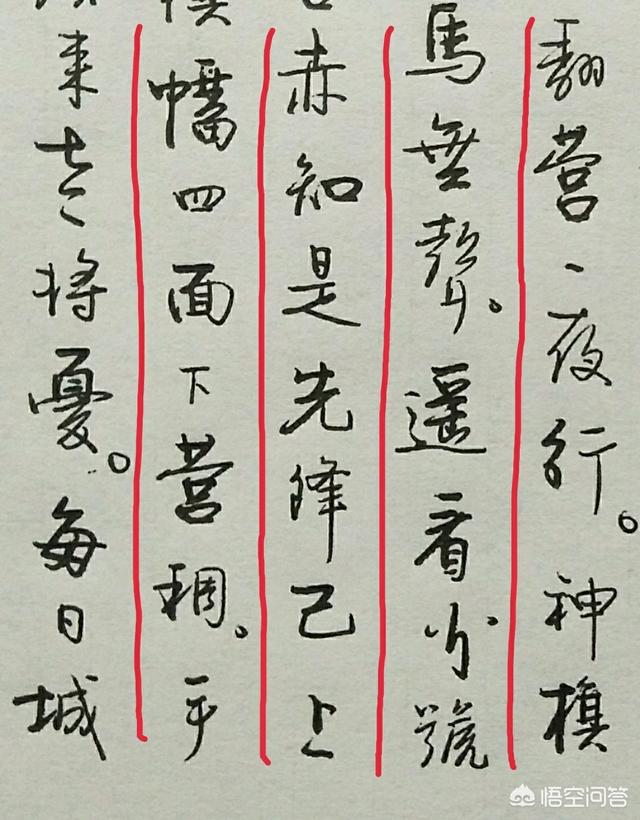 翻营一夜行。神旗
馬無聲。遥看火號
赤知是先鋒已上
幡四面下营稠。手
来老将憂。每日城
悟空问答